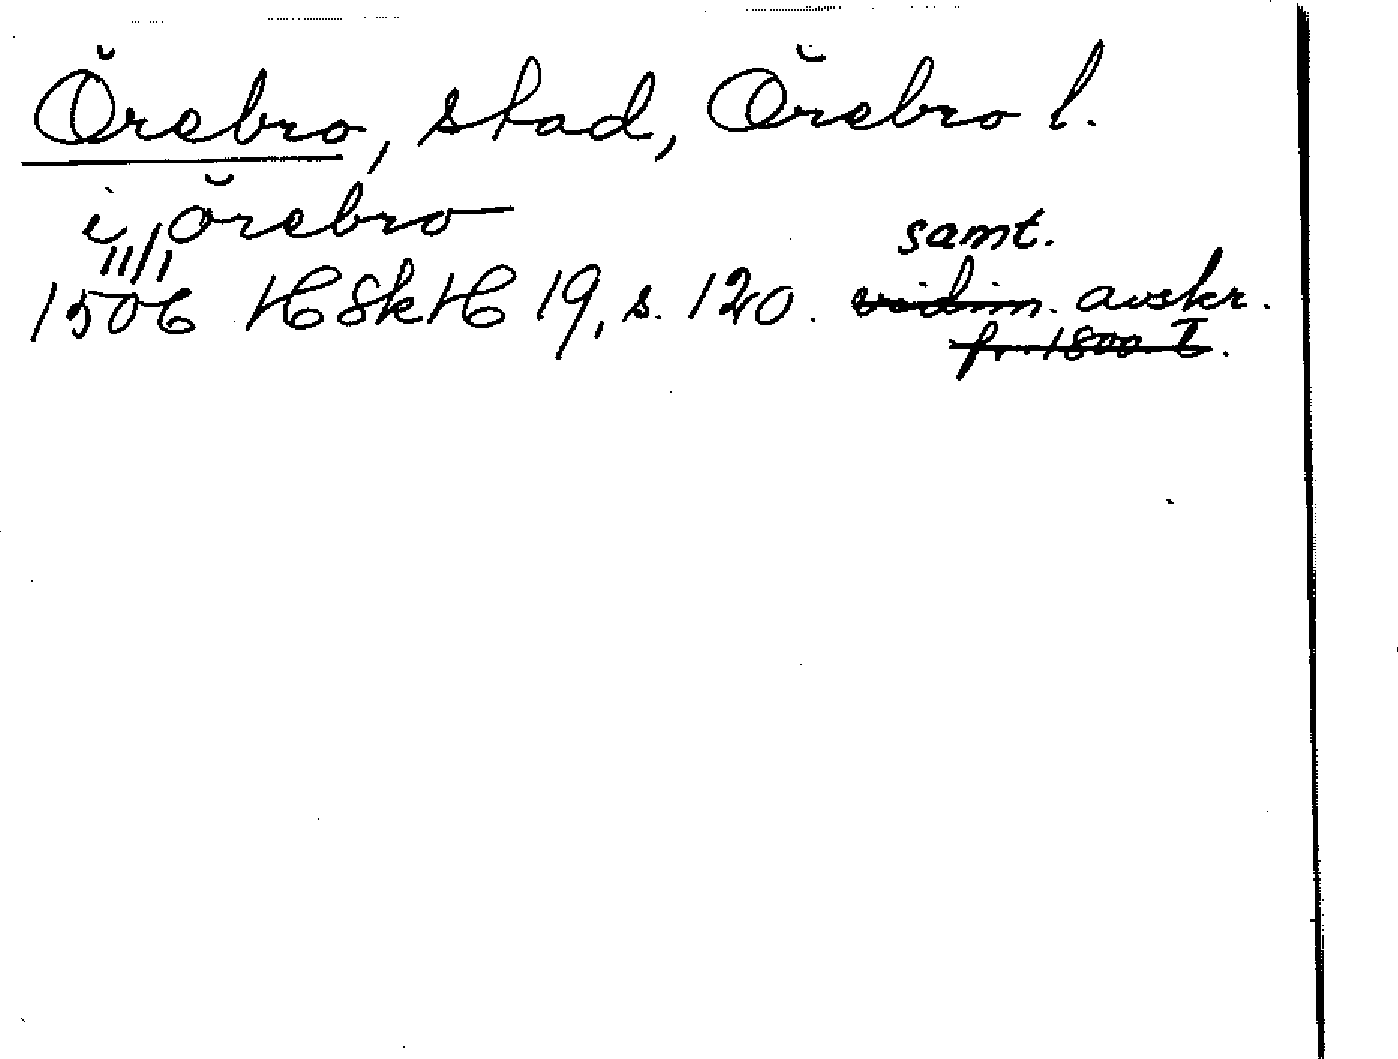 Örebro, stad, Örebro l.
i örebro
11/1
samt.
1506 HSkH 19, s. 120. vidim. avskr.
fr. 1800-t.